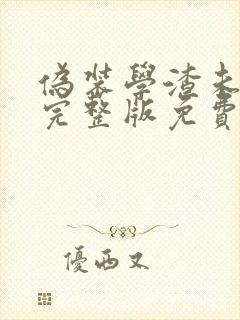 偽裝學渣未
完整版免費
優西又